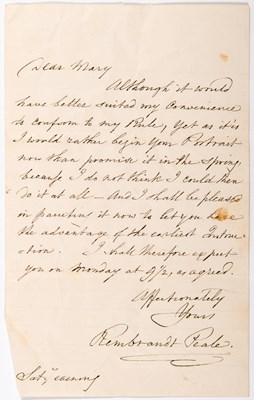 Dear Mary
Although it would
have better suited my Convenience
to conform to my Rule, yet as it is
I would rather begin your Portrait
now than promise it in the Spring,
because I do not think I could then
do it at all — And I shall be pleased
in painting it now to let you have
the advantage of the earliest Instru-
ction. I shall therefore expect
you on Monday at 9½, as agreed.
Affectionately
Yours
Rembrandt Peale.
Saty evening